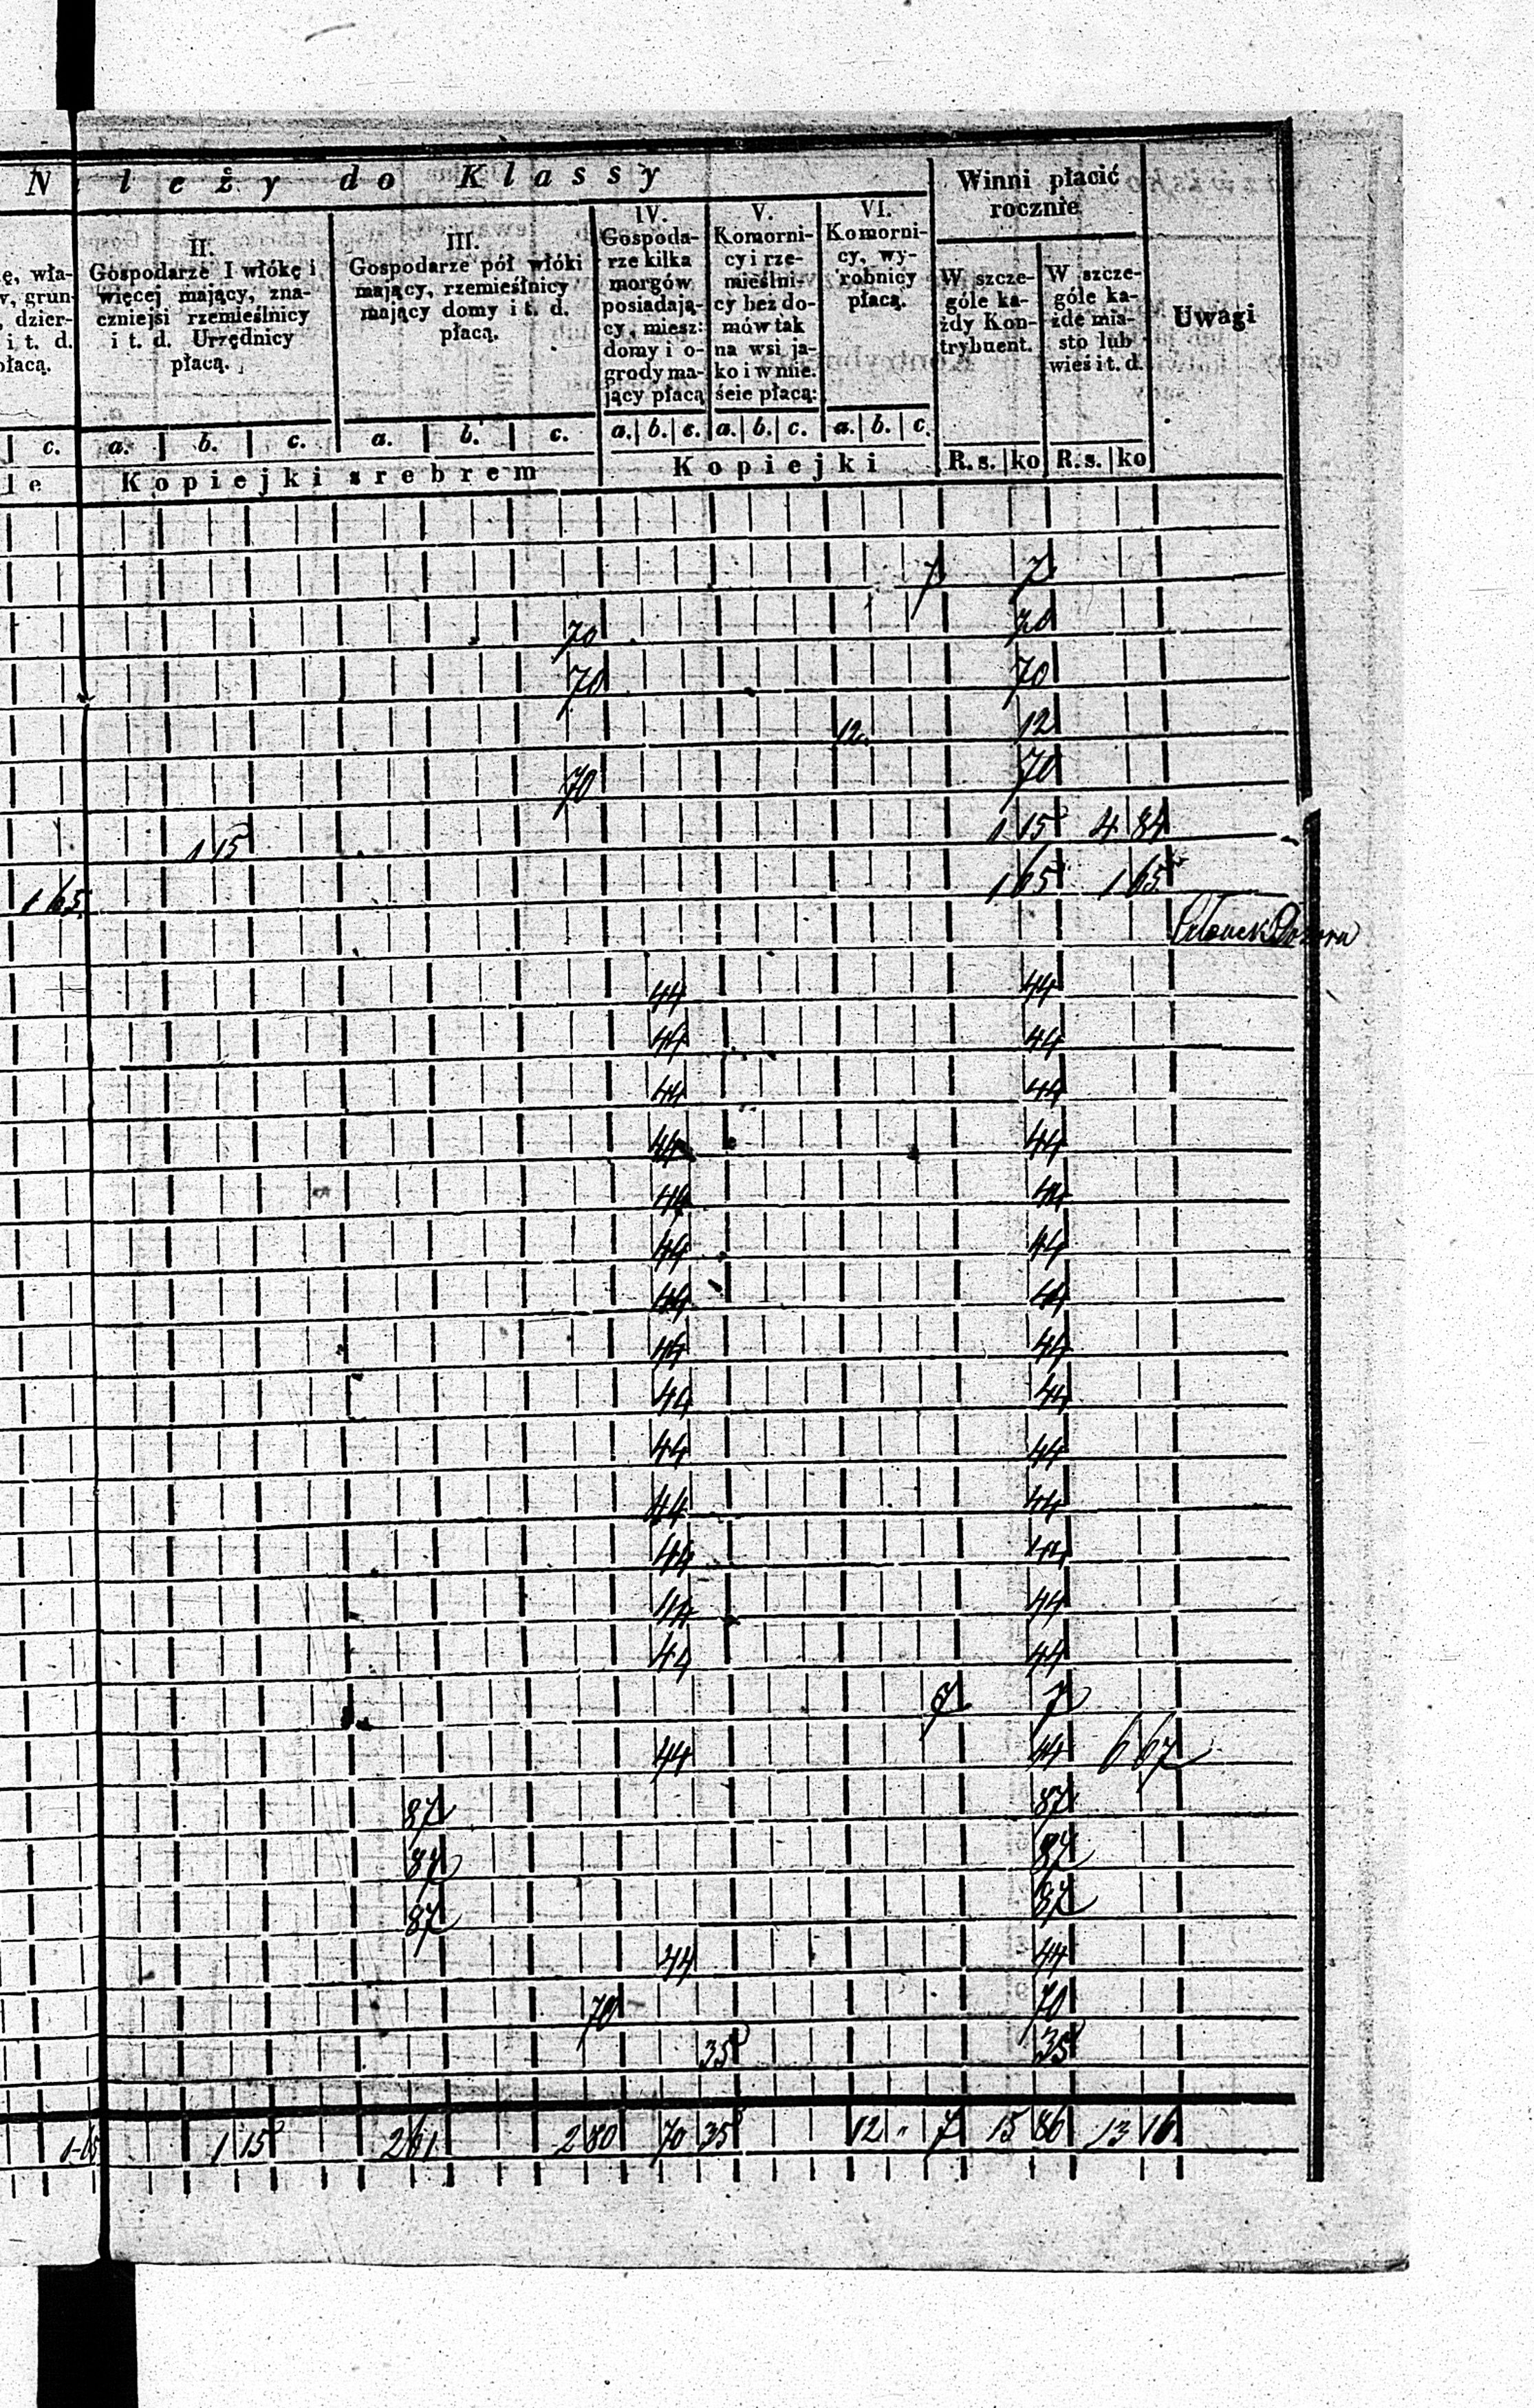 N leży do Klassy
Winni płacić
rocznie
Uwagi
ę, wła-
, grun-
, dzier-
i. t. d.
płacą.
II.
Gospodarze I włókę i
więcej mający, zna-
czniejsi rzemieślnicy
i t. d. Urzędnicy
płacą.
III.
Gospodarze pół włóki
mający, rzemieślnicy
mający domy i t. d.
płacą.
IV.
Gospoda-
rze kilka
morgów
posiadają-
cy, miesz:
domy i o-
grody ma-
jący płacą
V.
Komorni-
cy i rze-
mieślni-
cy bez do-
mów tak
na wsi ja-
ko i w mie.
ście płacą:
VI.
Komorni-
cy, wy-
robnicy
płacą.
W szcze-
góle ka-
żdy Kon-
trybuent.
W szcze-
góle ka-
żde mia-
sto lub
wieś i t. d.
c. a. b. c. a. b. c. a. b. c. a. b. c. a. b. c.
le Kopiejki srebrem Kopiejki R. s. ko R. s. ko
7 7
70 70
70 70
12 12
70 70
1 15 1 15 4 84
1 65 1 65 1 65
44 44
44 44
44 44
44 44
44 44
44 44
44 44
44 44
44 44
44 44
44 44
44 44
44 44
44 44
7 7
44 44 6 67
87 87
87 87
87 87
44 44
70 70
35 35
1 65 1 15 2 61 2 80 70 35 12 " 7 15 86 13 16